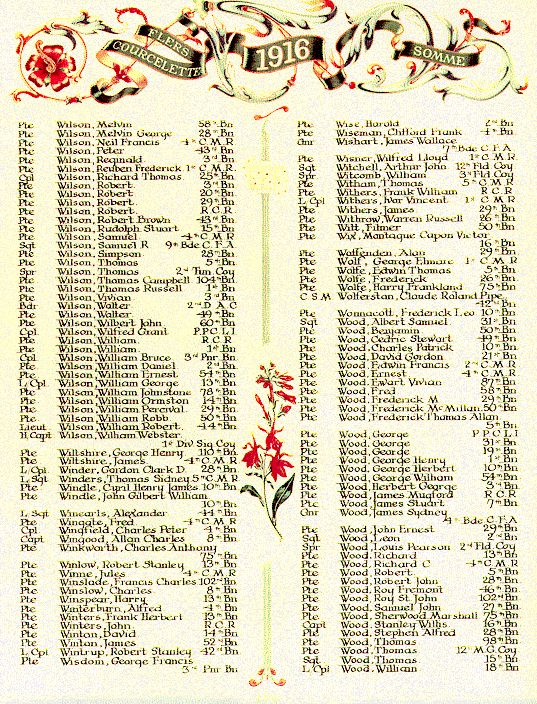 FLERS
COURCELETTE
1916
SOMME
Pte Wilson, Melvin 58th Bn
Pte Wilson, Melvin George 28th Bn
Pte Wilson, Neil Francis 4th C.M.R
Pte Wilson, Peter 43rd Bn
Pte Wilson, Reginald 3rd Bn
Pte Wilson, Reuben Frederick 1st C.M.R.
Cpl Wilson, Richard Thomas 25th Bn
Pte Wilson, Robert 3rd Bn
Pte Wilson, Robert 20th Bn
Pte Wilson, Robert 29th Bn
Pte Wilson, Robert R.C.R
Pte Wilson, Robert Brown 43rd Bn
Pte Wilson, Rudolph Stuart 15th Bn
Pte Wilson, Samuel 4th C.M.R
Sgt Wilson, Samuel R 9th Bde C.F.A
Pte Wilson, Simpson 28th Bn
Pte Wilson, Thomas 5th Bn
Spr Wilson, Thomas 2nd Tun Coy
Pte Wilson, Thomas Campbell 104th Bn
Pte Wilson, Thomas Russell 1st Bn
Pte Wilson, Vivian 3rd Bn
Bdr Wilson, Walter 2nd D.A.C
Pte Wilson, Walter 49th Bn
Pte Wilson, Wilbert John 60th Bn
Cpl. Wilson, Wilfred Grant P.P.C.L.I
Pte Wilson, William. R.C.R
Pte Wilson, William. 1st Bn
Cpl Wilson, William Bruce 3rd Pnr Bn
Pte Wilson, William Daniel 2nd Bn
Pte Wilson, William Ernest 54th Bn
L Cpl Wilson, William George 13th Bn
Pte Wilson, William Johnstone 78th Bn
Pte Wilson, William Ormston 14th Bn
Pte Wilson, William Percival 29th Bn
Pte Wilson, William Robb 50th Bn
Lieut Wilson, William Robert 44th Bn
H. Capt Wilson, William Webster.
1st Div Sig Coy
Pte Wiltshire, George Henry 110th Bn
Pte Wiltshire, James 4th C.M.R
L Cpl Winder, Gordon Clark D. 28th Bn
L Sgt Winders, Thomas Sidney 5th C.M.R
Pte Windle, Cyril Henry James 10th Bn
Pte Windle, John Gilbert William
10th Bn
L Sgt Winearls, Alexander 44th Bn
Pte Wingate, Fred 4th C.M.R
Cpl Wingfield, Charles Peter 4th Bn
Capt Wingood, Allan Charles 8th Bn
Pte Winkworth, Charles Anthony
75th Bn
Pte Winlow, Robert Stanley 13th Bn
Pte Winne, Jules 4th C.M.R
Pte Winslade, Francis Charles 102nd Bn
Pte Winslow, Charles 8th Bn
Pte Winspear, Harry 13th Bn
Pte Winterburn, Alfred 4th Bn
Pte Winters, Frank Herbert 13th Bn
Pte Winters, John R.C.R
Pte Winton, David 14th Bn
Pte Winton, James 52nd Bn
L Cpl Wintrup, Robert Stanley 42nd Bn
Pte Wisdom, George Francis
3rd Pnr Bn
Pte Wise, Harold 2nd Bn
Pte Wiseman, Clifford Frank 4th Bn
Gnr Wishart, James Wallace
7th Bde C.F.A
Pte Wisner, Wilfred Lloyd 1st C.M.R
Sgt Witchell, Arthur John 12th Fld Coy
Spr Witcomb, William 3rd Fld Coy
Pte Witham, Thomas 5th C.M.R
Pte Withers, Frank William R.C.R
L Cpl Withers, Ivor Vincent 1st C.M.R
Pte Withers, James 29th Bn
Pte Withrow, Warren Russell 26th Bn
Pte Witt, Filmer 50th Bn
Pte Wix, Montague Capon Victor
16th Bn
Pte Woffenden, Alan 29th Bn
Pte Wolf, George Elmore 1st C.M.R
Pte Wolfe, Edwin Thomas 5th Bn
Pte Wolfe, Frederick 26th Bn
Pte Wolfe, Harry Frankland 75th Bn
C S M Wolferstan, Claude Roland Pipe
42nd Bn
Pte Wonnacott, Frederick Leo 10th Bn
Sgt Wood, Albert Samuel 31st Bn
Pte Wood, Benjamin 50th Bn
Pte Wood, Cedric Stewart 49th Bn
Pte Wood, Charles Patrick 10th Bn
Pte Wood, David Gordon 21st Bn
Pte Wood, Edwin Francis 2nd C.M.R
Pte Wood, Ernest 4th C.M.R
Pte Wood, Ewart Vivian 87th Bn
Pte Wood, Fred 58th Bn
Pte Wood, Frederick M 29th Bn
Pte Wood, Frederick McMillan 50th Bn
Pte Wood, Frederick Thomas Allan
5th Bn
Pte Wood, George P.P.C.L.I
Pte Wood, George 31st Bn
Pte Wood, George 19th Bn
Pte Wood, George Henry 1st Bn
Pte Wood, George Herbert 10th Bn
Pte Wood, George William 54th Bn
Pte Wood, Herbert George 3rd Bn
Pte Wood, James Mugford R.C.R
Pte Wood, James Stuart 7th Bn
Gnr Wood, James Sydney
4th Bde C.F.A
Pte Wood, John Ernest 29th Bn
Sgt Wood, Leon 2nd Bn
Spr Wood, Louis Pearson 2nd Fld Coy
Pte Wood, Richard 13th Bn
Pte Wood, Richard C 4th C.M.R
Pte Wood, Robert 5th Bn
Pte Wood, Robert John 28th Bn
Pte Wood, Roy Fremont 46th Bn
Pte Wood, Roy St. John 102nd Bn
Pte Wood, Samuel John 27th Bn
Pte Wood, Sherwood Marshall 75th Bn
Capt Wood, Stanley Willis 16th Bn
Pte Wood, Stephen Alfred 28th Bn
Pte Wood, Thomas 98th Bn
Pte Wood, Thomas 12th M.G. Coy
Sgt Wood, Thomas 15th Bn
L Cpl Wood, William 18th Bn